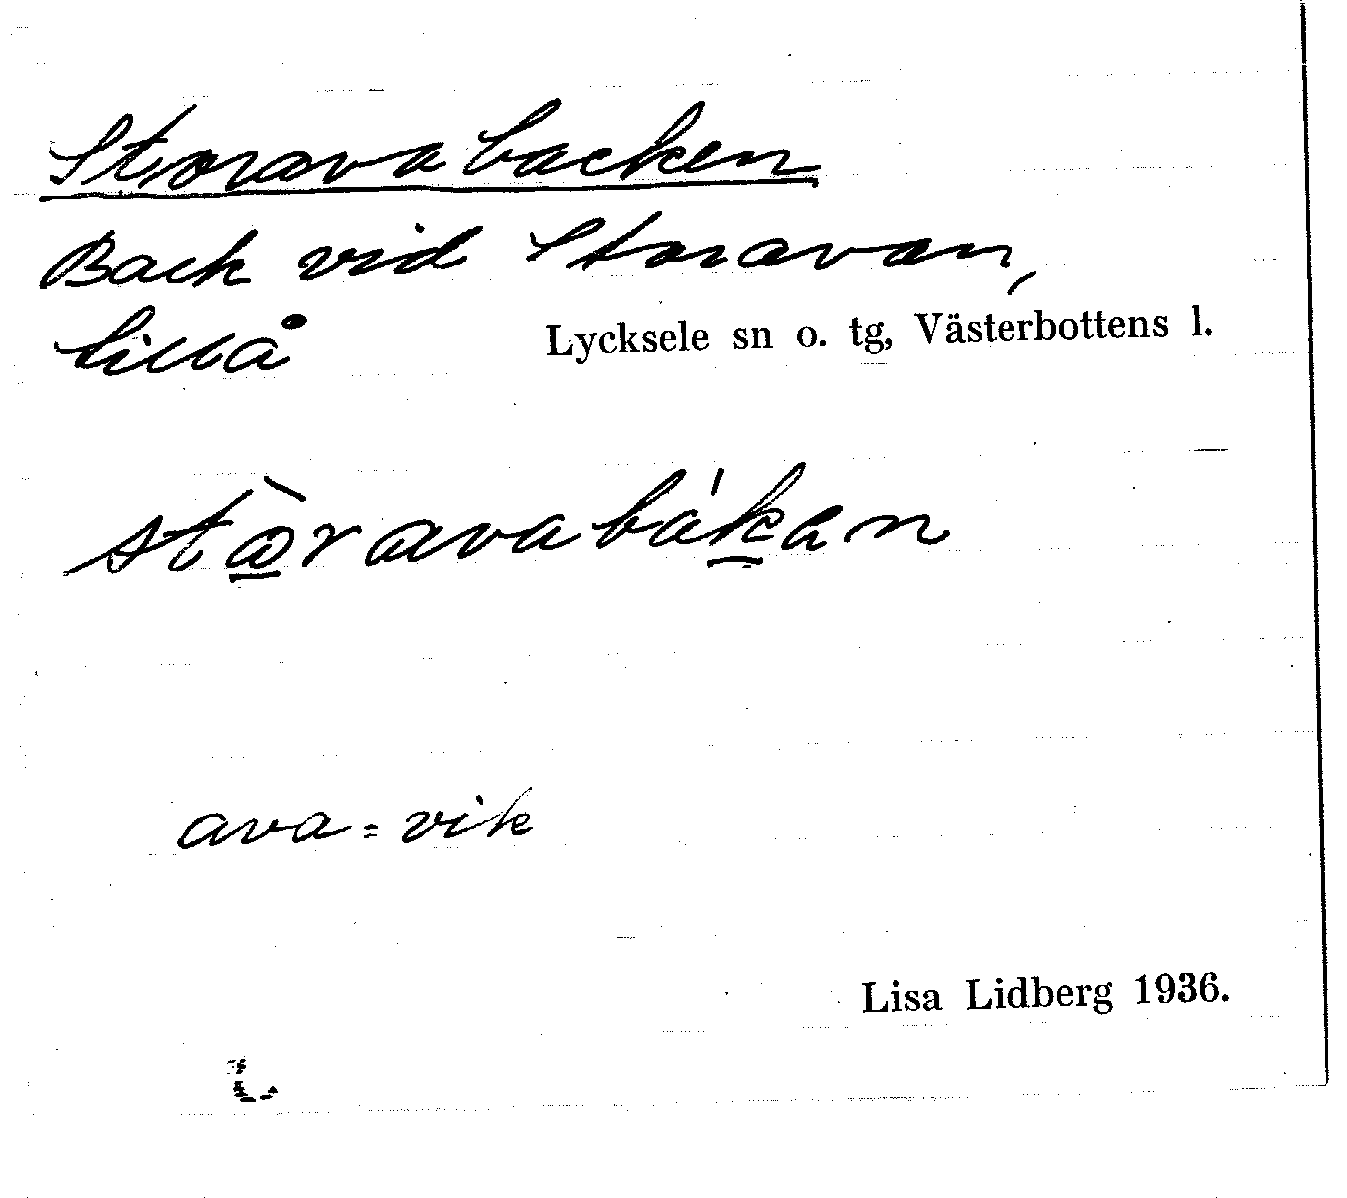 Storavabacken
Back vid Storavan,
Lillå Lycksele sn o. tg, Västerbottens l.
stò̠ravabák̠an
ava = vik
Lisa Lidberg 1936.